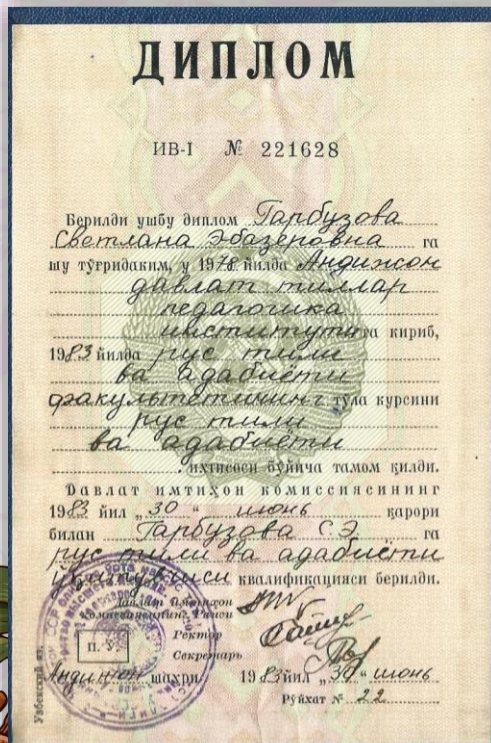 ДИПЛОМ
ИВ-I № 221628
Берилди ушбу диплом Гарбузова
Светлана Эбазеровна га
шу тўғридаким, у 1978 йилда Андижон
давлат тиллар
педагогика
институтига кириб,
1983 йилда рус тили
ва адабиёти
факультетининг тўла курсини
рус тили
ва адабиёти
ихтисоси бўйича тамом қилди.
Давлат имтиҳон комиссиясининг
1983 йил „30“ июнь қарори
билан Гарбузова С.Э. га
рус тили ва адабиёти
ўқитувчиси квалификацияси берилди.
Давлат имтиҳон
комиссиясининг Раиси
Ректор
Секретарь
М.Ў.
Андижон шаҳри 1983 йил „30“ июнь
Рўйхат № 22
Узбекский яз.